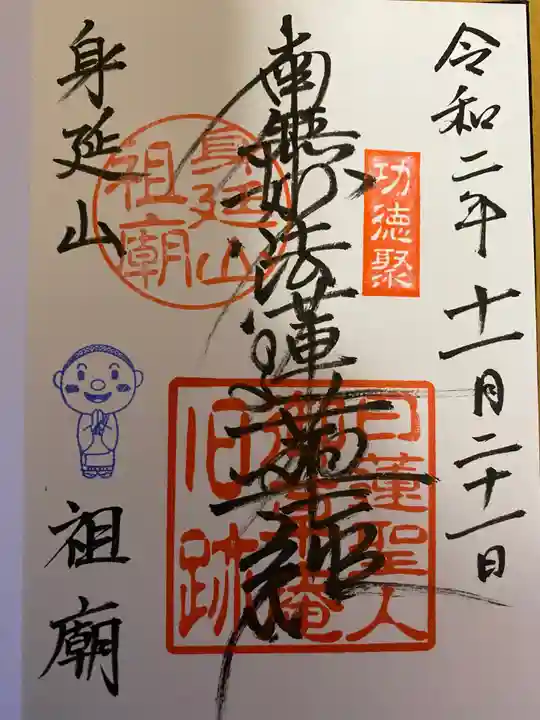 令和二年十一月二十一日
功徳聚
南無妙法蓮華経
身延山
祖廟
日蓮聖人
御草庵
旧跡
身延山
祖廟